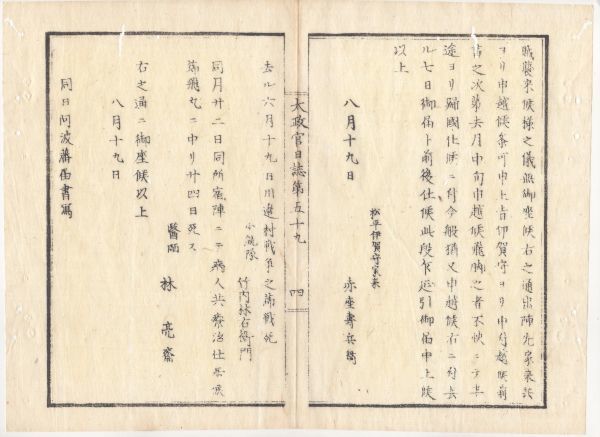 賊襲来候様之儀無御座候右之通出陣先家来共
ヨリ申越候条可申上旨伊賀守ヨリ申付越候前
書之次第去月中旬申越候飛脚之者不快ニテ中
途ヨリ帰国仕候ニ付今般猶又申越候右ニ付去
ル七日御届ト前後仕候此段乍延引御届申上候
以上
八月十九日
松平伊賀守家来
赤座寿兵衛
太政官日誌第五十九
四
去ル六月十九日川辺村戦争之節戦死
小銃隊
竹内林右衛門
同月廿二日同所宿陣ニテ病人共療治仕居候
端飛丸ニ中リ廿四日死ス
医師
林亮斎
右之通ニ御座候以上
八月十九日
同日阿波藩届書写